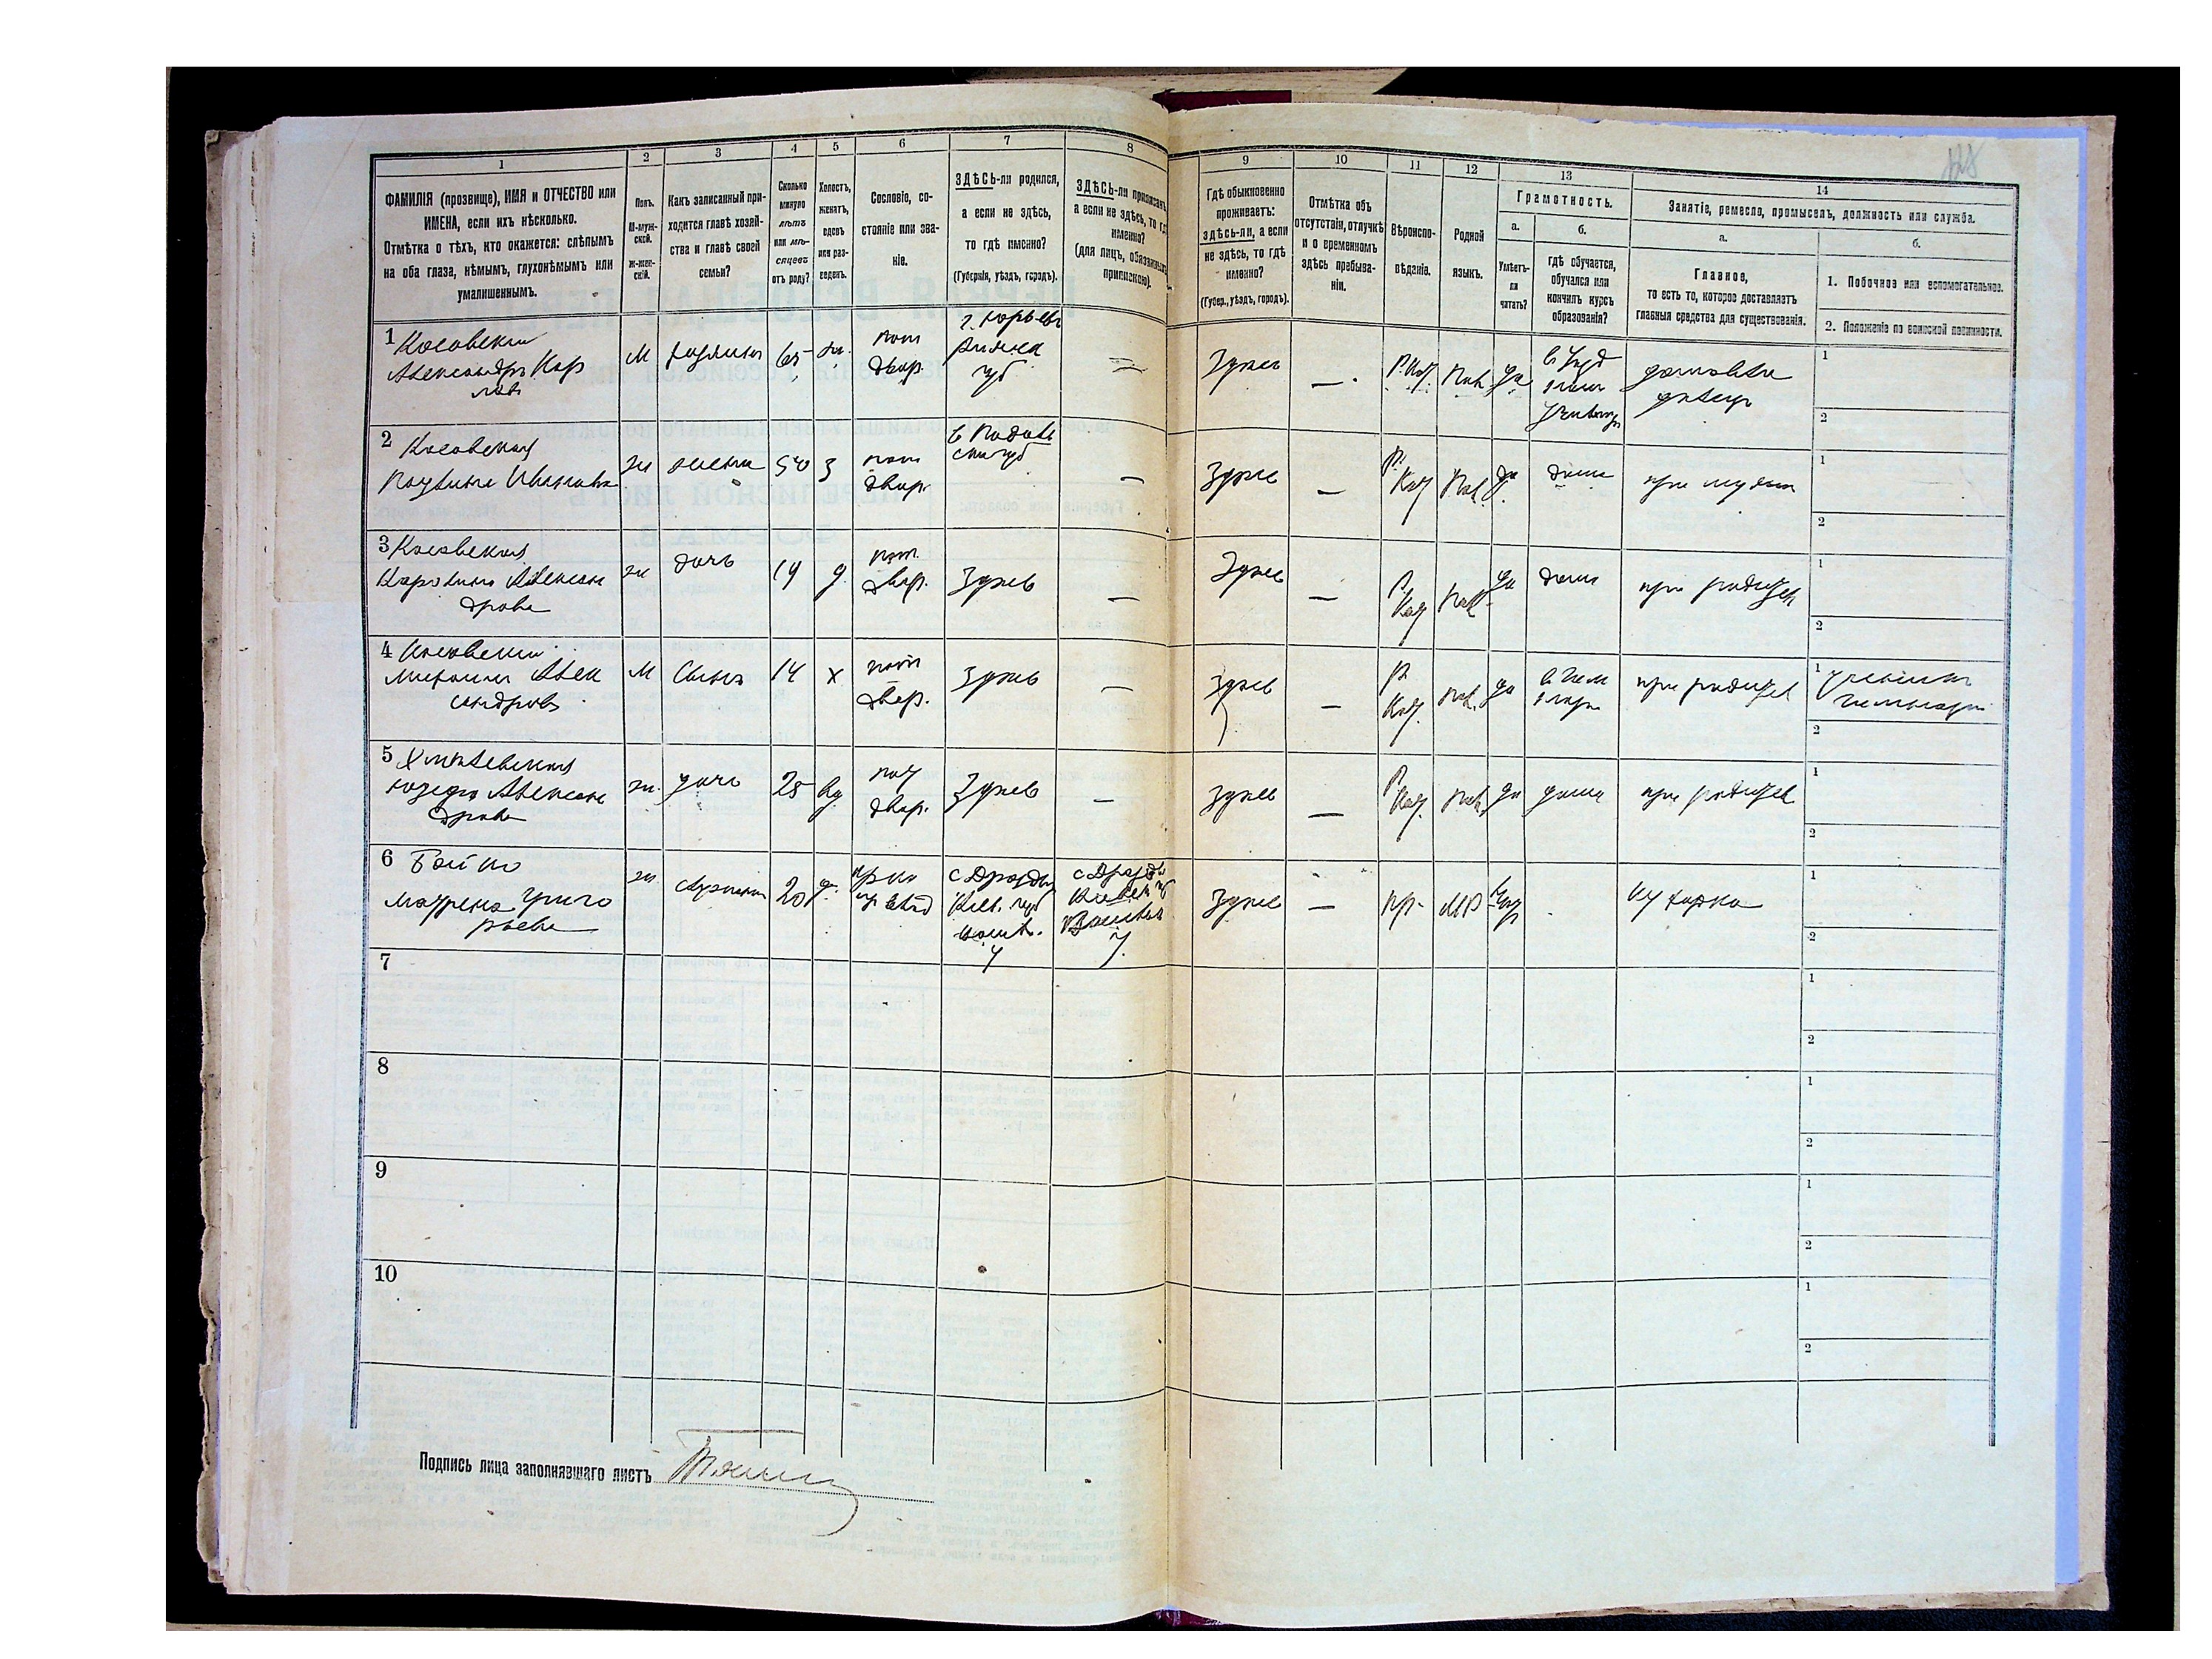 1
2
3
4
5
6
7
8
9
10
11
12
13
14
ФАМИЛІЯ (прозвище), ИМЯ и ОТЧЕСТВО или
ИМЕНА, если ихъ нѣсколько.
Отмѣтка о тѣхъ, кто окажется: слѣпымъ
на оба глаза, нѣмымъ, глухонѣмымъ или
умалишеннымъ.
Полъ.
М-муж-
ской.
Ж-жен-
скій.
Какъ записанный при-
ходится главѣ хозяй-
ства и главѣ своей
семьи?
Сколько
минуло
лѣтъ
или мѣ-
сяцевъ
отъ роду?
Холостъ,
женатъ,
вдовъ
или раз-
веденъ.
Сословіе, со-
стояніе или зва-
ніе.
ЗДѢСЬ-ли родился,
а если не здѣсь,
то гдѣ именно?
(Губернія, уѣздъ, городъ).
ЗДѢСЬ-ли приписанъ,
а если не здѣсь, то гдѣ
именно?
(для лицъ, обязанныхъ
припиской).
Гдѣ обыкновенно
проживаетъ:
здѣсь-ли, а если
не здѣсь, то гдѣ
именно?
(Губер., уѣздъ, городъ).
Отмѣтка объ
отсутствіи, отлучкѣ
и о временномъ
здѣсь пребыва-
ніи.
Вѣроиспо-
вѣданіе.
Родной
языкъ.
Грамотность.
а.
б.
Умѣетъ-
ли
читать?
гдѣ обучается,
обучался или
кончилъ курсъ
образованія?
Занятіе, ремесло, промыселъ, должность или служба.
а.
б.
Главное,
то есть то, которое доставляетъ
главныя средства для существованія.
1. Побочное или вспомогательное.
2. Положеніе по воинской повинности.
1 Косовскій
Александръ Кар
М
65
пот
двор.
г. Юрьевъ
губ
—
Здѣсь
—
Р. Кат.
Пол.
да
1
2
2 Косовская
Паулина Ивановна
ж
жена
50
З
пот
двор.
—
Здѣсь
—
Р.
Кат
Пол.
да
дома
при мужѣ
1
2
3 Косовская
Каролина Алексан
дрова
ж
дочь
19
д
пот.
двор.
Здѣсь
—
Здѣсь
—
Р.
Кат
Пол.
да
дома
при родител
1
2
4 Косовскій
Алек
сандровъ
М
Сынъ
14
х
пот
двор.
Здѣсь
—
здѣсь
—
Р
Кат.
Пол.
да
в гим
при родител
1 ученикъ
гимназіи
2
5
Алексан
дрова
ж.
дочь
25
вд
пот
двор.
Здѣсь
—
здѣсь
—
Р.
Кат.
Пол.
да
дома
при родител
1
2
6 Бойко
Григо
рьева
ж.
20
д.
Кіев. губ
Здѣсь
—
пр.
МР
кухарка
1
2
7
1
2
8
1
2
9
1
2
10
1
2
Подпись лица заполнявшаго листъ